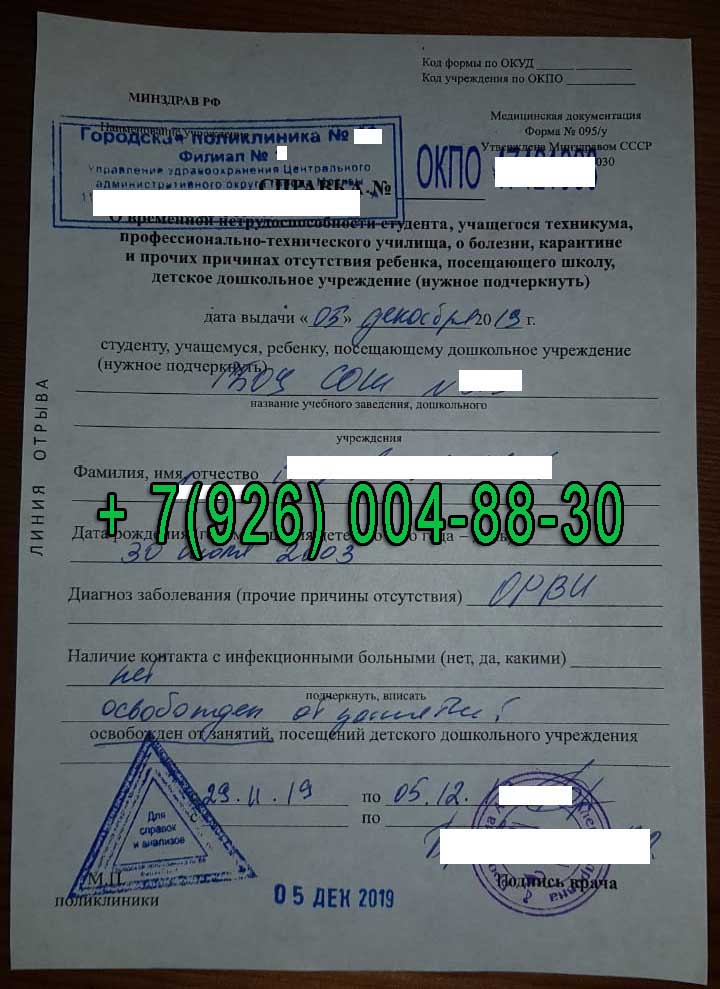 Код формы по ОКУД
Код учреждения по ОКПО
МИНЗДРАВ РФ
Наименование учреждения
Медицинская документация
Форма № 095/у
Утверждена Минздравом СССР
030
Городская поликлиника №
Филиал №
Управление здравоохранения Центрального
административного округа города Москвы
ОКПО
СПРАВКА №
О временной нетрудоспособности студента, учащегося техникума,
профессионально-технического училища, о болезни, карантине
и прочих причинах отсутствия ребенка, посещающего школу,
детское дошкольное учреждение (нужное подчеркнуть)
дата выдачи «05» декабря 2019 г.
студенту, учащемуся, ребенку, посещающему дошкольное учреждение
(нужное подчеркнуть)
СОШ №
название учебного заведения, дошкольного
учреждения
Фамилия, имя, отчество
+ 7(926) 004-88-30
Дата рождения
30 июля 2003
Диагноз заболевания (прочие причины отсутствия) ОРВИ
Наличие контакта с инфекционными больными (нет, да, какими)
нет
подчеркнуть, вписать
освобожден от занятий
освобожден от занятий, посещений детского дошкольного учреждения
с 29.11.19 по 05.12.
по
Для
справок
и анализов
М.П.
поликлиники
05 ДЕК 2019
Подпись врача
ЛИНИЯ ОТРЫВА